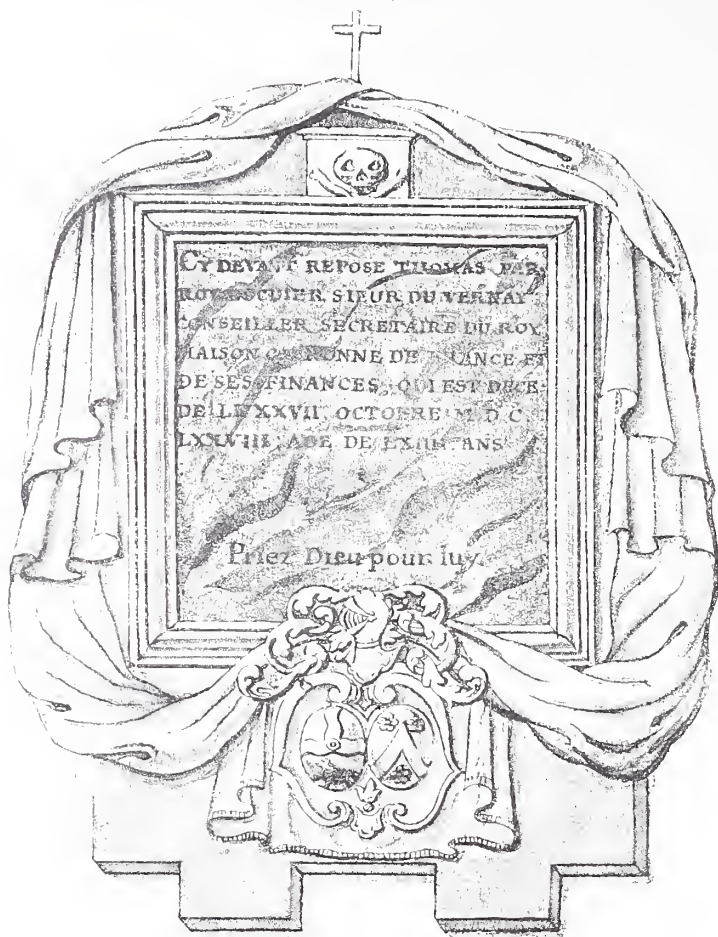 CY DEVANT REPOSE THOMAS PAR
ROY ESCUIER SIEUR DU VERNAY
CONSEILLER SECRETAIRE DU ROY
MAISON COURONNE DE FRANCE ET
DE SES FINANCES, QUI EST DECE
DE LE XXVII OCTOBRE M D C
LXXVIII AGE DE ANS
Priez Dieu pour luy.